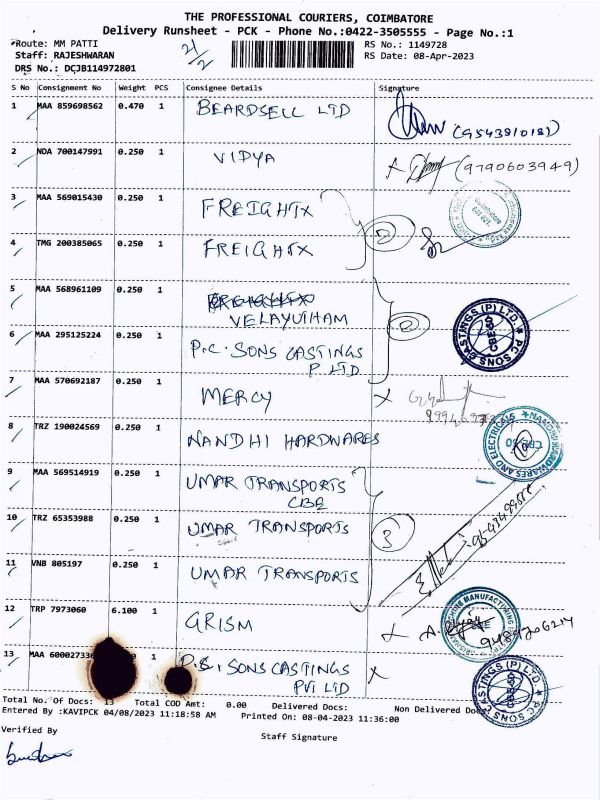 THE PROFESSIONAL COURIERS, COIMBATORE
Delivery Runsheet - PCK - Phone No.:0422-3505555 - Page No.:1
Route: MM PATTI RS No.: 1149728
Staff: RAJESHWARAN 2/2 RS Date: 08-Apr-2023
DRS No.: DCJB114972801
S No Consignment No Weight PCS Consignee Details Signature
1 MAA 859698562 0.470 1 BEARDSELL LTD
2 NDA 700147991 0.250 1 VIDYA (9790603949)
3 MAA 569015430 0.250 1 FREIGHTX
4 TMG 200385065 0.250 1 FREIGHTX 2
5 MAA 568961109 0.250 1 VELAYUTHAM
6 MAA 295125224 0.250 1 P.C. SONS CASTINGS
P LTD
PC SONS CASTINGS (P) LTD. CBE
7 MAA 570692187 0.250 1 MERCY X
8 TRZ 190024569 0.250 1 NANDHI HARDWARES
NANDHI HARDWARES AND ELECTRICALS
9 MAA 569514919 0.250 1 UMAR TRANSPORTS
CBE
10 TRZ 65353988 0.250 1 UMAR TRANSPORTS 3
11 VNB 805197 0.250 1 UMAR TRANSPORTS
12 TRP 7973060 6.100 1 GRISM
13 MAA 1 P.C. SONS CASTINGS X
PVT LTD
PC SONS CASTINGS (P) LTD.
Total No. Of Docs: 13 Total COD Amt: 0.00 Delivered Docs: Non Delivered Docs
Entered By :KAVIPCK 04/08/2023 11:18:58 AM Printed On: 08-04-2023 11:36:00
Verified By Staff Signature